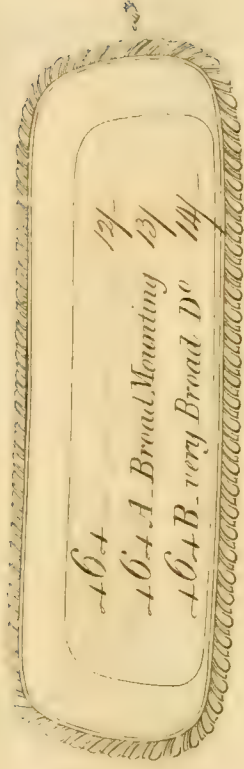 464 12/-
464 A_Broad Mounting 13/
464 B_very Broad Dº 14/-